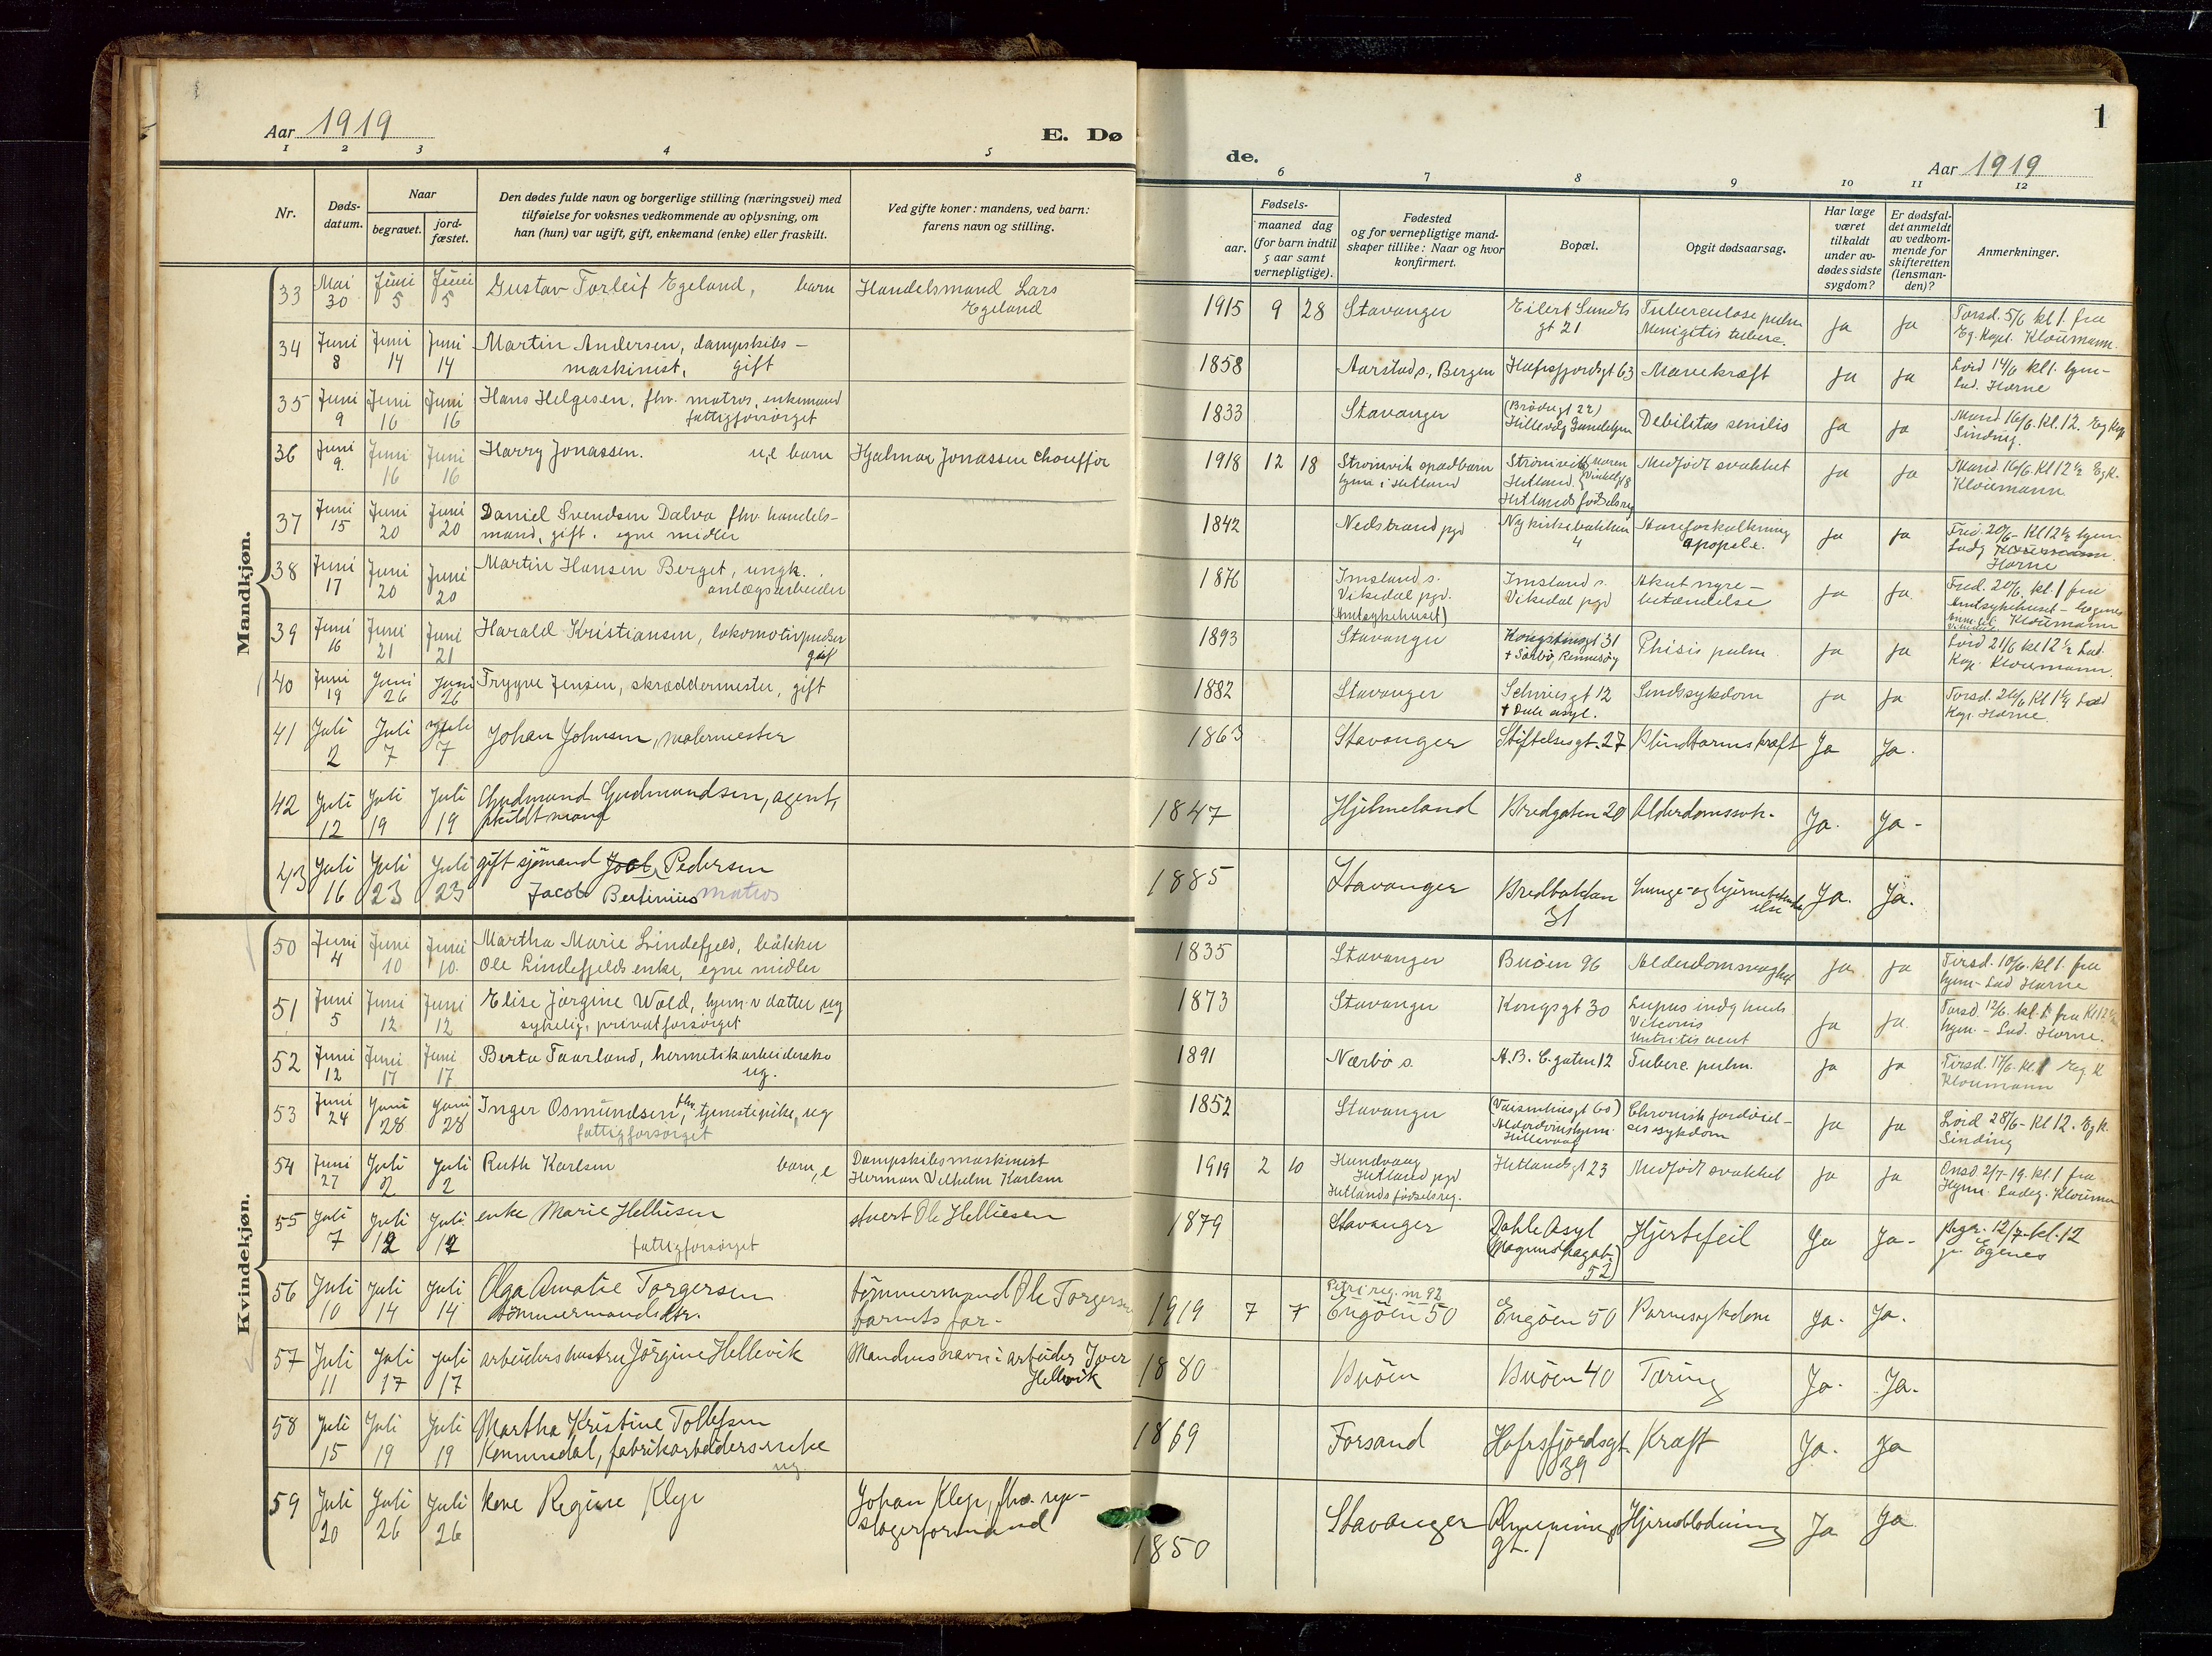 Aar 1919
E. Dø
de.
1
Aar 1919
1 2 3 4 5
6 7 8 9 10 11 12
Nr.
Døds-
datum.
Naar
begravet.
jord-
fæstet.
Den dødes fulde navn og borgerlige stilling (næringsvei) med
tilføielse for voksnes vedkommende av oplysning, om
han (hun) var ugift, gift, enkemand (enke) eller fraskilt.
Ved gifte koner: mandens, ved barn:
farens navn og stilling.
Fødsels-
aar.
maaned dag
(for barn indtil
5 aar samt
vernepligtige).
Fødested
og for vernepligtige mand-
skaper tillike: Naar og hvor
konfirmert.
Bopæl.
Opgit dødsaarsag.
Har læge
været
tilkaldt
under av-
dødes sidste
sygdom?
Er dødsfal-
det anmeldt
av vedkom-
mende for
skifteretten
(lensman-
den)?
Anmerkninger.
Mandkjøn.
33 Mai 30 Juni 5 Juni 5 Gustav Torleif Egeland, barn Handelsmand Lars
Egeland
1915 9 28 Stavanger Eilert Sundts gt 21 Tuberculose pulm Menigitis tuberc. Ja Ja Torsd. 5/6 kl 1. fra
Eg. Kapl. Kloumann.
34 Juni 8 Juni 14 Juni 14 Martin Andersen, dampskibs-
maskinist, gift
1858 Aarstad s., Bergen Hafrsfjordsgt 63 Mavekræft Ja Ja Lørd 14/6 kl 1. hjm-
Lad. Horne
35 Juni 9 Juni 16 Juni 16 Hans Helgesen, fhv. matros, enkemand
fattigforsørget
1833 Stavanger (Brødregt 22) Debilitas senilis Ja Ja Mand 16/6. kl. 12. Eg Kap
Sinding.
36 Juni 9. Juni 16 Juni 16 Harry Jonassen. u,e barn Hjalmar Jonassen chouffør
1918 12 18 Strømvik spædbarn
hjem i Hetland Strømvik Hetland. Hetlands fødselsreg Medfødt svakhet Ja Ja Mand. 16/6. Kl 12 1/2 Eg K.
Kloumann
37 Juni 15 Juni 20 Juni 20 Daniel Svendsen Dalva fhv handels-
mand, gift. egne midler
1842 Nedstrand pgd Nykirkebakken 4 Aareforkalkning
apopolex. Ja Ja Fred. 20/6- Kl 12 1/2 hjem
Ladg Kloumann.
Horne
38 Juni 17 Juni 20 Juni 20 Martin Hansen Berget, ungk.
anlægsarbeider
1876 Imsland s.
Vikedal pgd.
(Amtsykehuset) Imsland s.
Vikedal pgd Akut nyre-
betændelse Ja Ja. Fred. 20/6. kl. 1 fra
Amtsykehuset - Egenes
Kloumann
39 Juni 16 Juni 21 Juni 21 Harald Kristiansen, lokomotivpudser
gift
1893 Stavanger Kongstensgt 31
+ Sørbø, Rennesøy Phisis pulm. Ja Ja Lørd 21/6 kl 12 1/2 Lad.
Kap. Kloumann.
40 Juni 19 Juni 26 Juni 26 Trygve Jensen, skræddermester, gift
1882 Stavanger Schives gt 12
+ Dale asyl. Sindssykdom Ja Ja Torsd. 26/6 Kl 1 1/2 Lad
Kap. Horne.
41 Juli 2 Juli 7 Juli 7 Johan Johnsen, malermester
1863 Stavanger Stiftelsesgt. 27 Blindtarmskræft Ja Ja.
42 Juli 12 Juli 19 Juli 19 Gudmund Gudmundsen, agent,
skildt mand
1847 Hjelmeland Bredgaten 20 Alderdomssvk. Ja. Ja-
43 Juli 16 Juli 23 Juli 23 gift sjømand Joab, Pedersen
Jacob Bertinius matros
1885 Stavanger Bredbakken
31 Lunge- og hjernebetænd-
else Ja. Ja.
Kvindekjøn.
50 Juni 4 Juni 10 Juni 10. Martha Marie Lindefjeld, bøkker
Ole Lindefjelds enke, egne midler
1835 Stavanger Buøen 96 Alderdomsvaghet Ja Ja Tirsd. 10/6. kl 1. fra
hjem- Lad Horne
51 Juni 5 Juni 12 Juni 12 Elise Jørgine Wold, hjem. v datter ug
sykelig, privatforsørget
1873 Stavanger Kongsgt 30 Lupus Ja Ja. Torsd. 12/6. kl. 1. fra Kl 12 1/2
hjem. - Lad. Horne.
52 Juni 12 Juni 17 Juni 17 Berta Taarland, hermetikarbeiderske
ug.
1891 Nærbø s. A. B. C. gaten 12 Tuberc. pulm. Ja Ja Tirsd. 17/6. kl. 1 Eg K
Kloumann
53 Juni 24 Juni 28 Juni 28 Inger Osmundsen, fhv. tjenestepike, ug
fattigforsørget
1852 Stavanger (Vaisenhusgt 60)
Alderdomshjem.
Hillevaag Chronisk fordøiel-
sessykdom Ja Ja Lørd 28/6- Kl 12. Eg K.
Sinding
54 Juni 27 Juli 2 Juli 2 Ruth Karlsen barn, e Dampskibsmaskinist
Herman Vilhelm Karlsen
1919 2 10 Hundvaag
Hetland pgd
Hetlands fødselsreg. Hetlandsgt 23 Medfødt svakhet Ja Ja Onsd 2/7-19. kl 1 fra
Hjem. Ladeg. Kloumann
55 Juli 7 Juli 12 Juli 12 enke Marie Helliesen
fattigforsørget stuert Ole Helliesen
1879 Stavanger Dahle Asyl
52) Hjertefeil Ja Ja- 12/7-kl. 12
Egenes
56 Juli 10 Juli 14 Juli 14 Olga Amalie Torgersen
tømmermandsdtr. tømmermand Ole Torgersen
barnets far-
1919 7 7 Petri reg. nr 92
Engøen 50 Engøen 50 Barnesykdom Ja- Ja.
57 Juli 11 Juli 17 Juli 17 arbeiders hustru Jørgine Hellevik Mandens navn: arbeider Iver
Hellevik
1880 Buøen Buøen 40 Tæring Ja- Ja-
58 Juli 15 Juli 19 Juli 19 Martha Kristine Tollefsen
fabrikarbeiderske
ug.
1869 Forsand Hafrsfjordsgt.
39 Kræft Ja- Ja
59 Juli 20 Juli 26 Juli 26 kone Regine Klep Johan Klep, fhv. rep-
slagerformand
1850 Stavanger gt. 1 Hjerneblødning Ja Ja